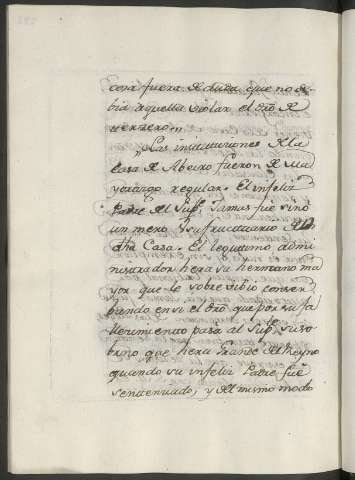 cosa fuera de duda, que no de-
bia aquella violar el dro de
tercero...
"Las instituciones de la
Casa de Abeiro fueron de Ma-
yorazgo regular. El infeliz
Padre del Supte. Jamas fue sino
un mero Usufructuario de
dha Casa. El legitimo admi-
nistrador hera su hermano ma-
yor que le sobrevibio conser-
bando en si el dro que por su fa-
llecimiento paso al Supte. su so-
brino que hera Grande del Reyno
quando su infeliz Padre fue
sentenciado; y del mismo modo